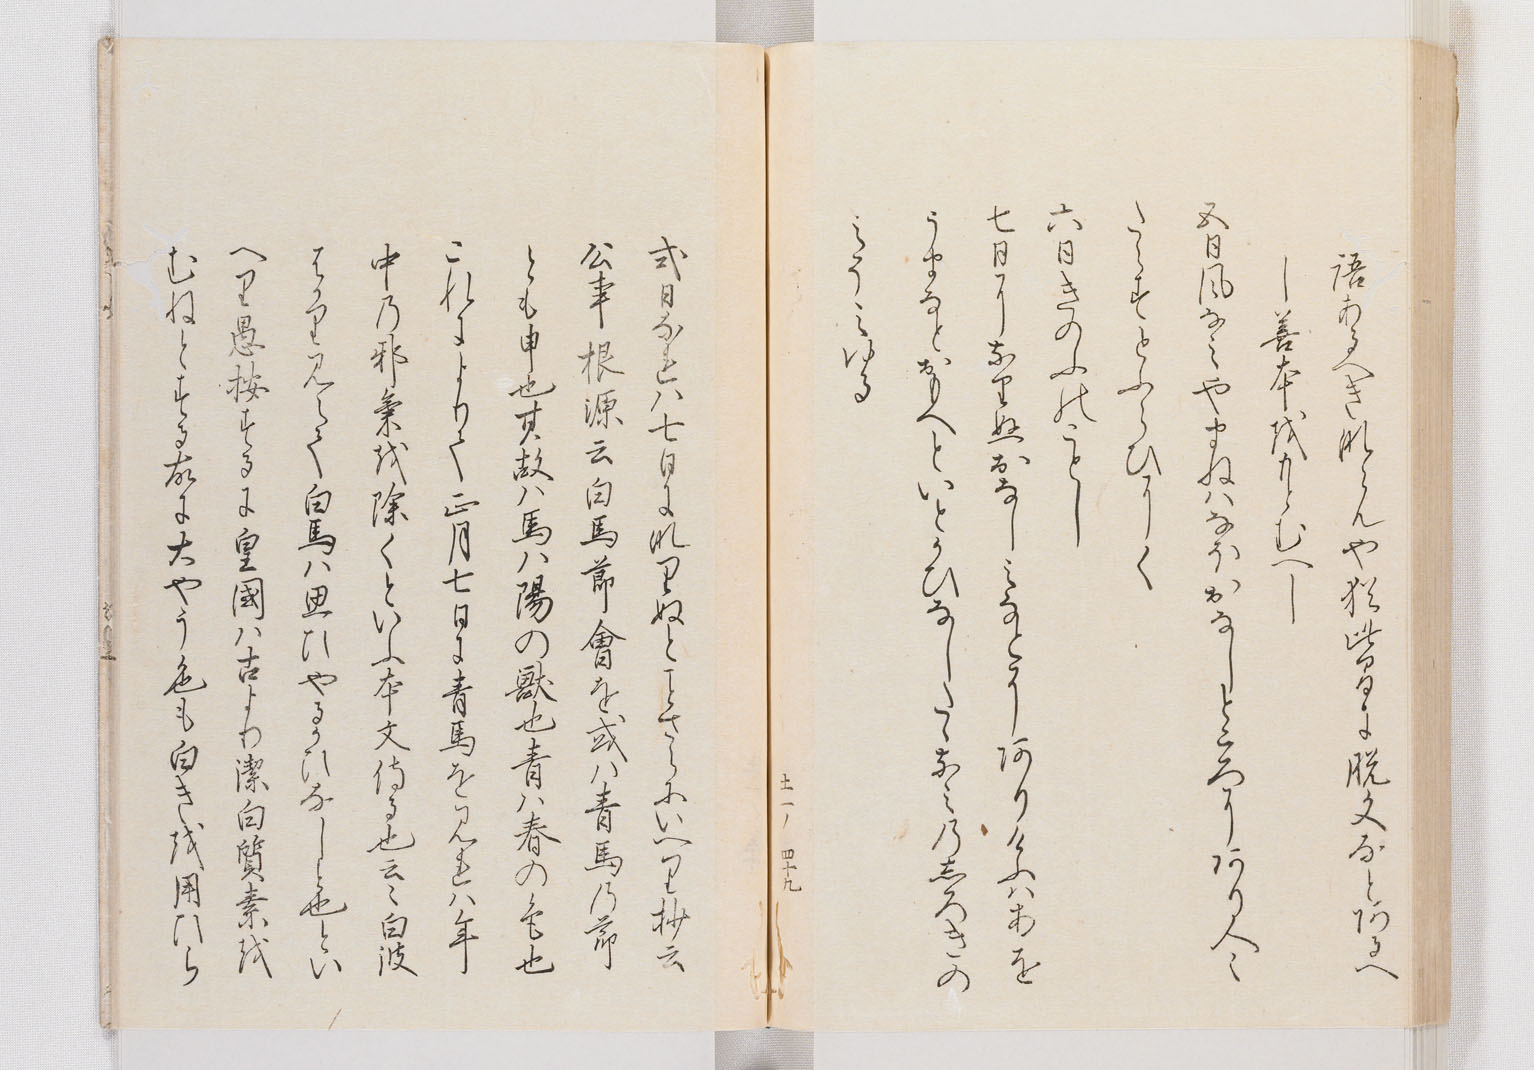 語あるへきならんや猶此間に脱文なとあるへ
し善本をもとむへし
五日風なみやまねはなほおなしところにあり人〻
たえすとふらひにく
六日きのふのことし
七日になりぬおなしみなとにありけふはあを
うまなとおもへといとかひなしたゝなみのしろきの
みそみゆる
土一ノ 四十九
式日なれは七日になりぬとことさらにいへり抄云
公事根源云白馬節會を或は青馬の節
とも申也其故は馬は陽の獣也青は春の色也
これによりて正月七日に青馬を見れは年
中の邪氣を除くといふ本文侍る也云〻白波
はかり見えて白馬は思ひやるかひなしと也とい
へり愚按するに皇國は古より潔白質素を
むねとする故に大やう色も白きを用ひら